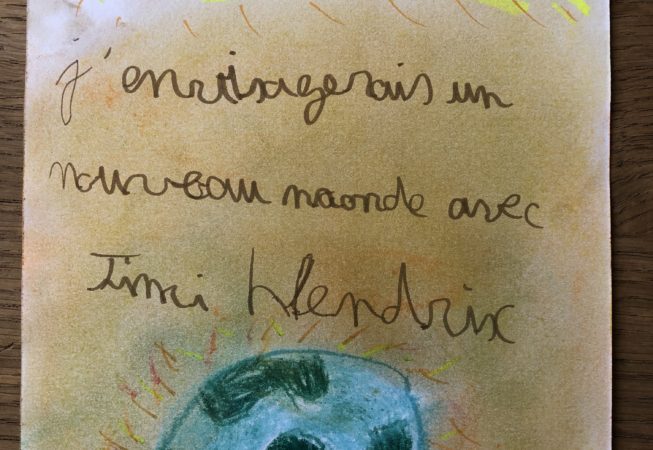 j'envisagerais un
nouveau monde avec
Jimi Hendrix